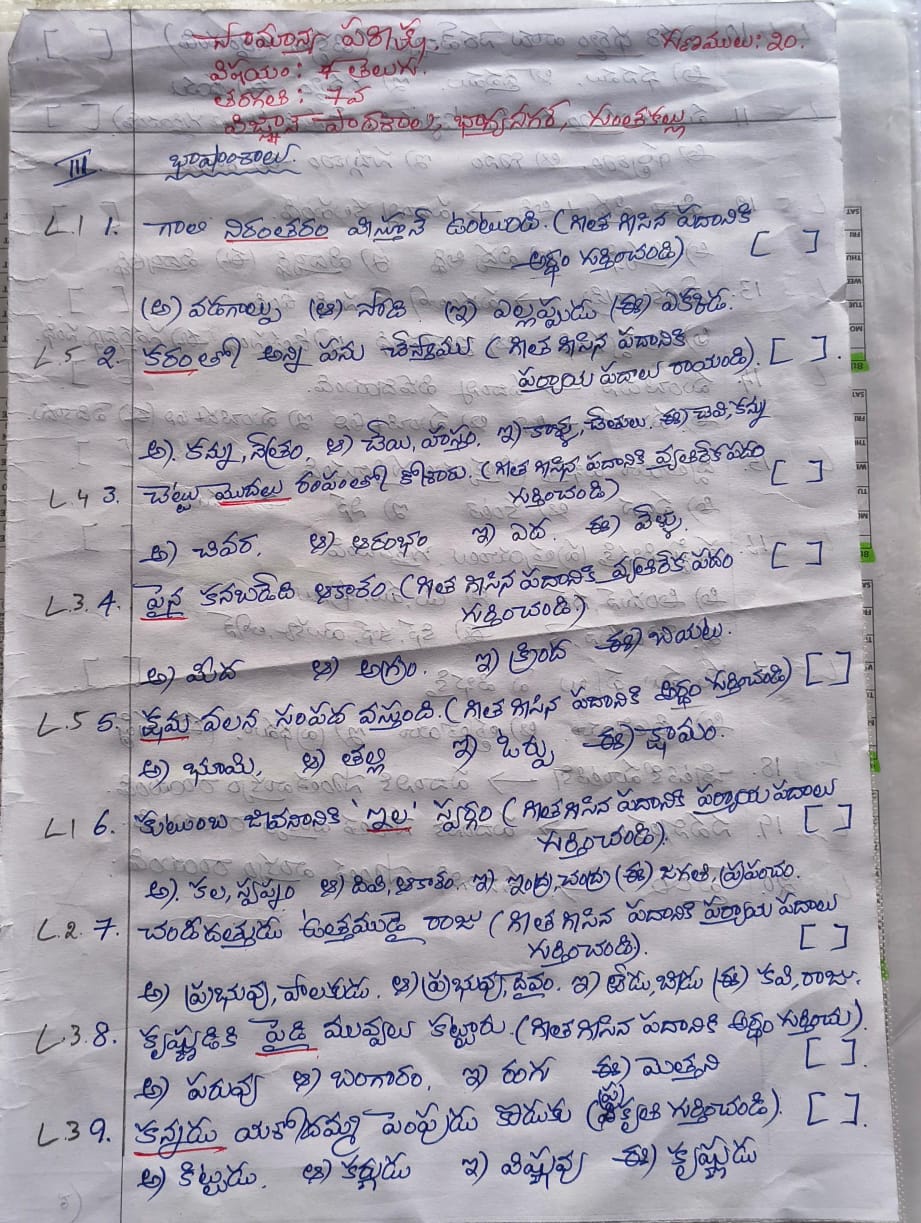 సామాన్య పరీక్ష. గుణములు: 20.
విషయం: తెలుగు.
తరగతి: 7వ
విజ్ఞాన పాఠశాల, భాగ్యనగర్, గుంతకల్లు
III భాషాంశాలు.
L.1 1. గాలి నిరంతరం వీస్తూనే ఉంటుంది. (గీత గీసిన పదానికి
అర్థం గుర్తించండి) [ ]
(అ) వడగాల్పు (ఆ) పాడి (ఇ) ఎల్లప్పుడు (ఈ) ఎక్కడ.
L.5 2. కరంతో అన్ని పను చేస్తాము (గీత గీసిన పదానికి
పర్యాయ పదాలు రాయండి). [ ].
అ). కన్ను, నేత్రం, ఆ) చేయి, హస్తం. ఇ) కాళ్ళు, చేతులు. ఈ) చెవి, కన్ను
L.4 3. చెట్టు మొదలు రంపంతో కోశారు. (గీత గీసిన పదానికి వ్యతిరేక పదం
గుర్తించండి) [ ]
అ) చివర. ఆ) ఆరంభం ఇ) ఎద. ఈ) వేళ్ళు.
L.3. 4. పైన కనబడేది ఆకాశం. (గీత గీసిన పదానికి వ్యతిరేక పదం
గుర్తించండి.) [ ]
అ) మీద ఆ) అగ్రం. ఇ) క్రింద ఈ) బయట.
L.5 5. క్షమ వలన సంపద వస్తుంది. (గీత గీసిన పదానికి అర్థం గుర్తించండి) [ ]
అ) భూమి, ఆ) తల్లి ఇ) ఓర్పు ఈ) క్షామం.
L1 6. కుటుంబ జీవనానికి 'ఇల' స్వర్గం (గీత గీసిన పదానికి పర్యాయ పదాలు
గుర్తించండి). [ ]
అ). కల, స్వప్నం ఆ) దితి, ఆకాశం. ఇ) ఇంద్ర, చంద్ర (ఈ) జగతి, ప్రపంచం.
L.2. 7. చండీదత్తుడు ఉత్తముడై రాజు (గీత గీసిన పదానికి పర్యాయ పదాలు
గుర్తించండి). [ ]
అ) ప్రభువు, పాలకుడు. ఆ) ప్రభువు, దైవం. ఇ) లేడు, బీడు (ఈ) కవి, రాజు.
L.3. 8. కృష్ణుడికి పైడి మువ్వలు కట్టారు. (గీత గీసిన పదానికి అర్థం గుర్తించు).
[ ].
అ) పరువు ఆ) బంగారం, ఇ) రంగు ఈ) మెత్తని
L.3 9. కన్నడు యశోదమ్మ పెంపుడు కొడుకు (ప్రకృతి గుర్తించండి). [ ].
అ) కిట్టుడు. ఆ) కర్ణుడు ఇ) విష్ణువు ఈ) కృష్ణుడు